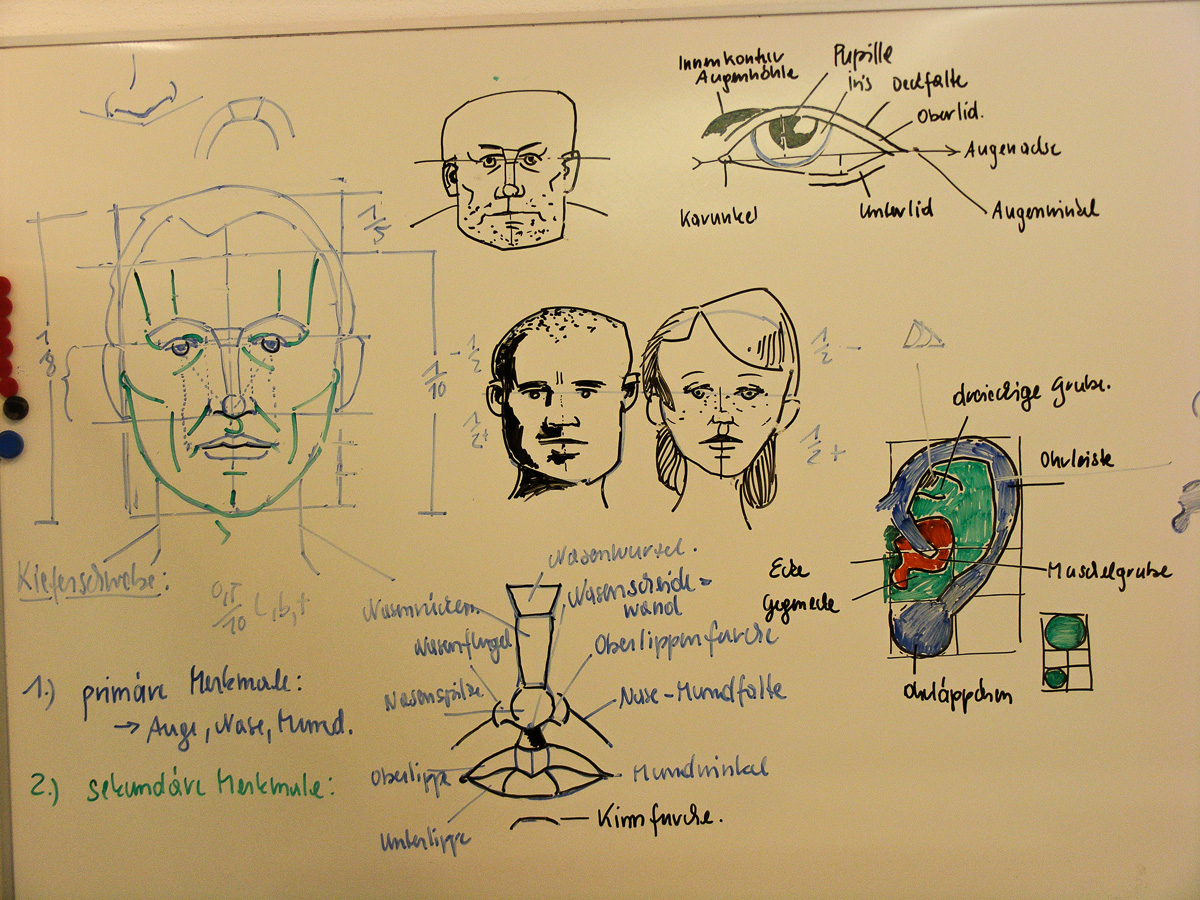 Innenkontur
Augenhöhle
Pupille
Iris
Deckfalte
Oberlid.
Augenachse
Karunkel
Unterlid
Augenwinkel
1/5
1/8
1/10
- 1/2
1/2 +
1/2 -
1/2 +
dreieckige Grube.
Ohrleiste
Ecke
Gegenecke
Muschelgrube
Ohrläppchen
Nasenwurzel.
Nasenrücken
Nasenscheide=
wand
Nasenflügel
Oberlippenfurche
Nasenspitze
Nase-Mundfalte
Oberlippe
Mundwinkel
Unterlippe
Kinnfurche.
1.) primäre Merkmale:
→ Auge, Nase, Mund.
2.) sekundäre Merkmale: